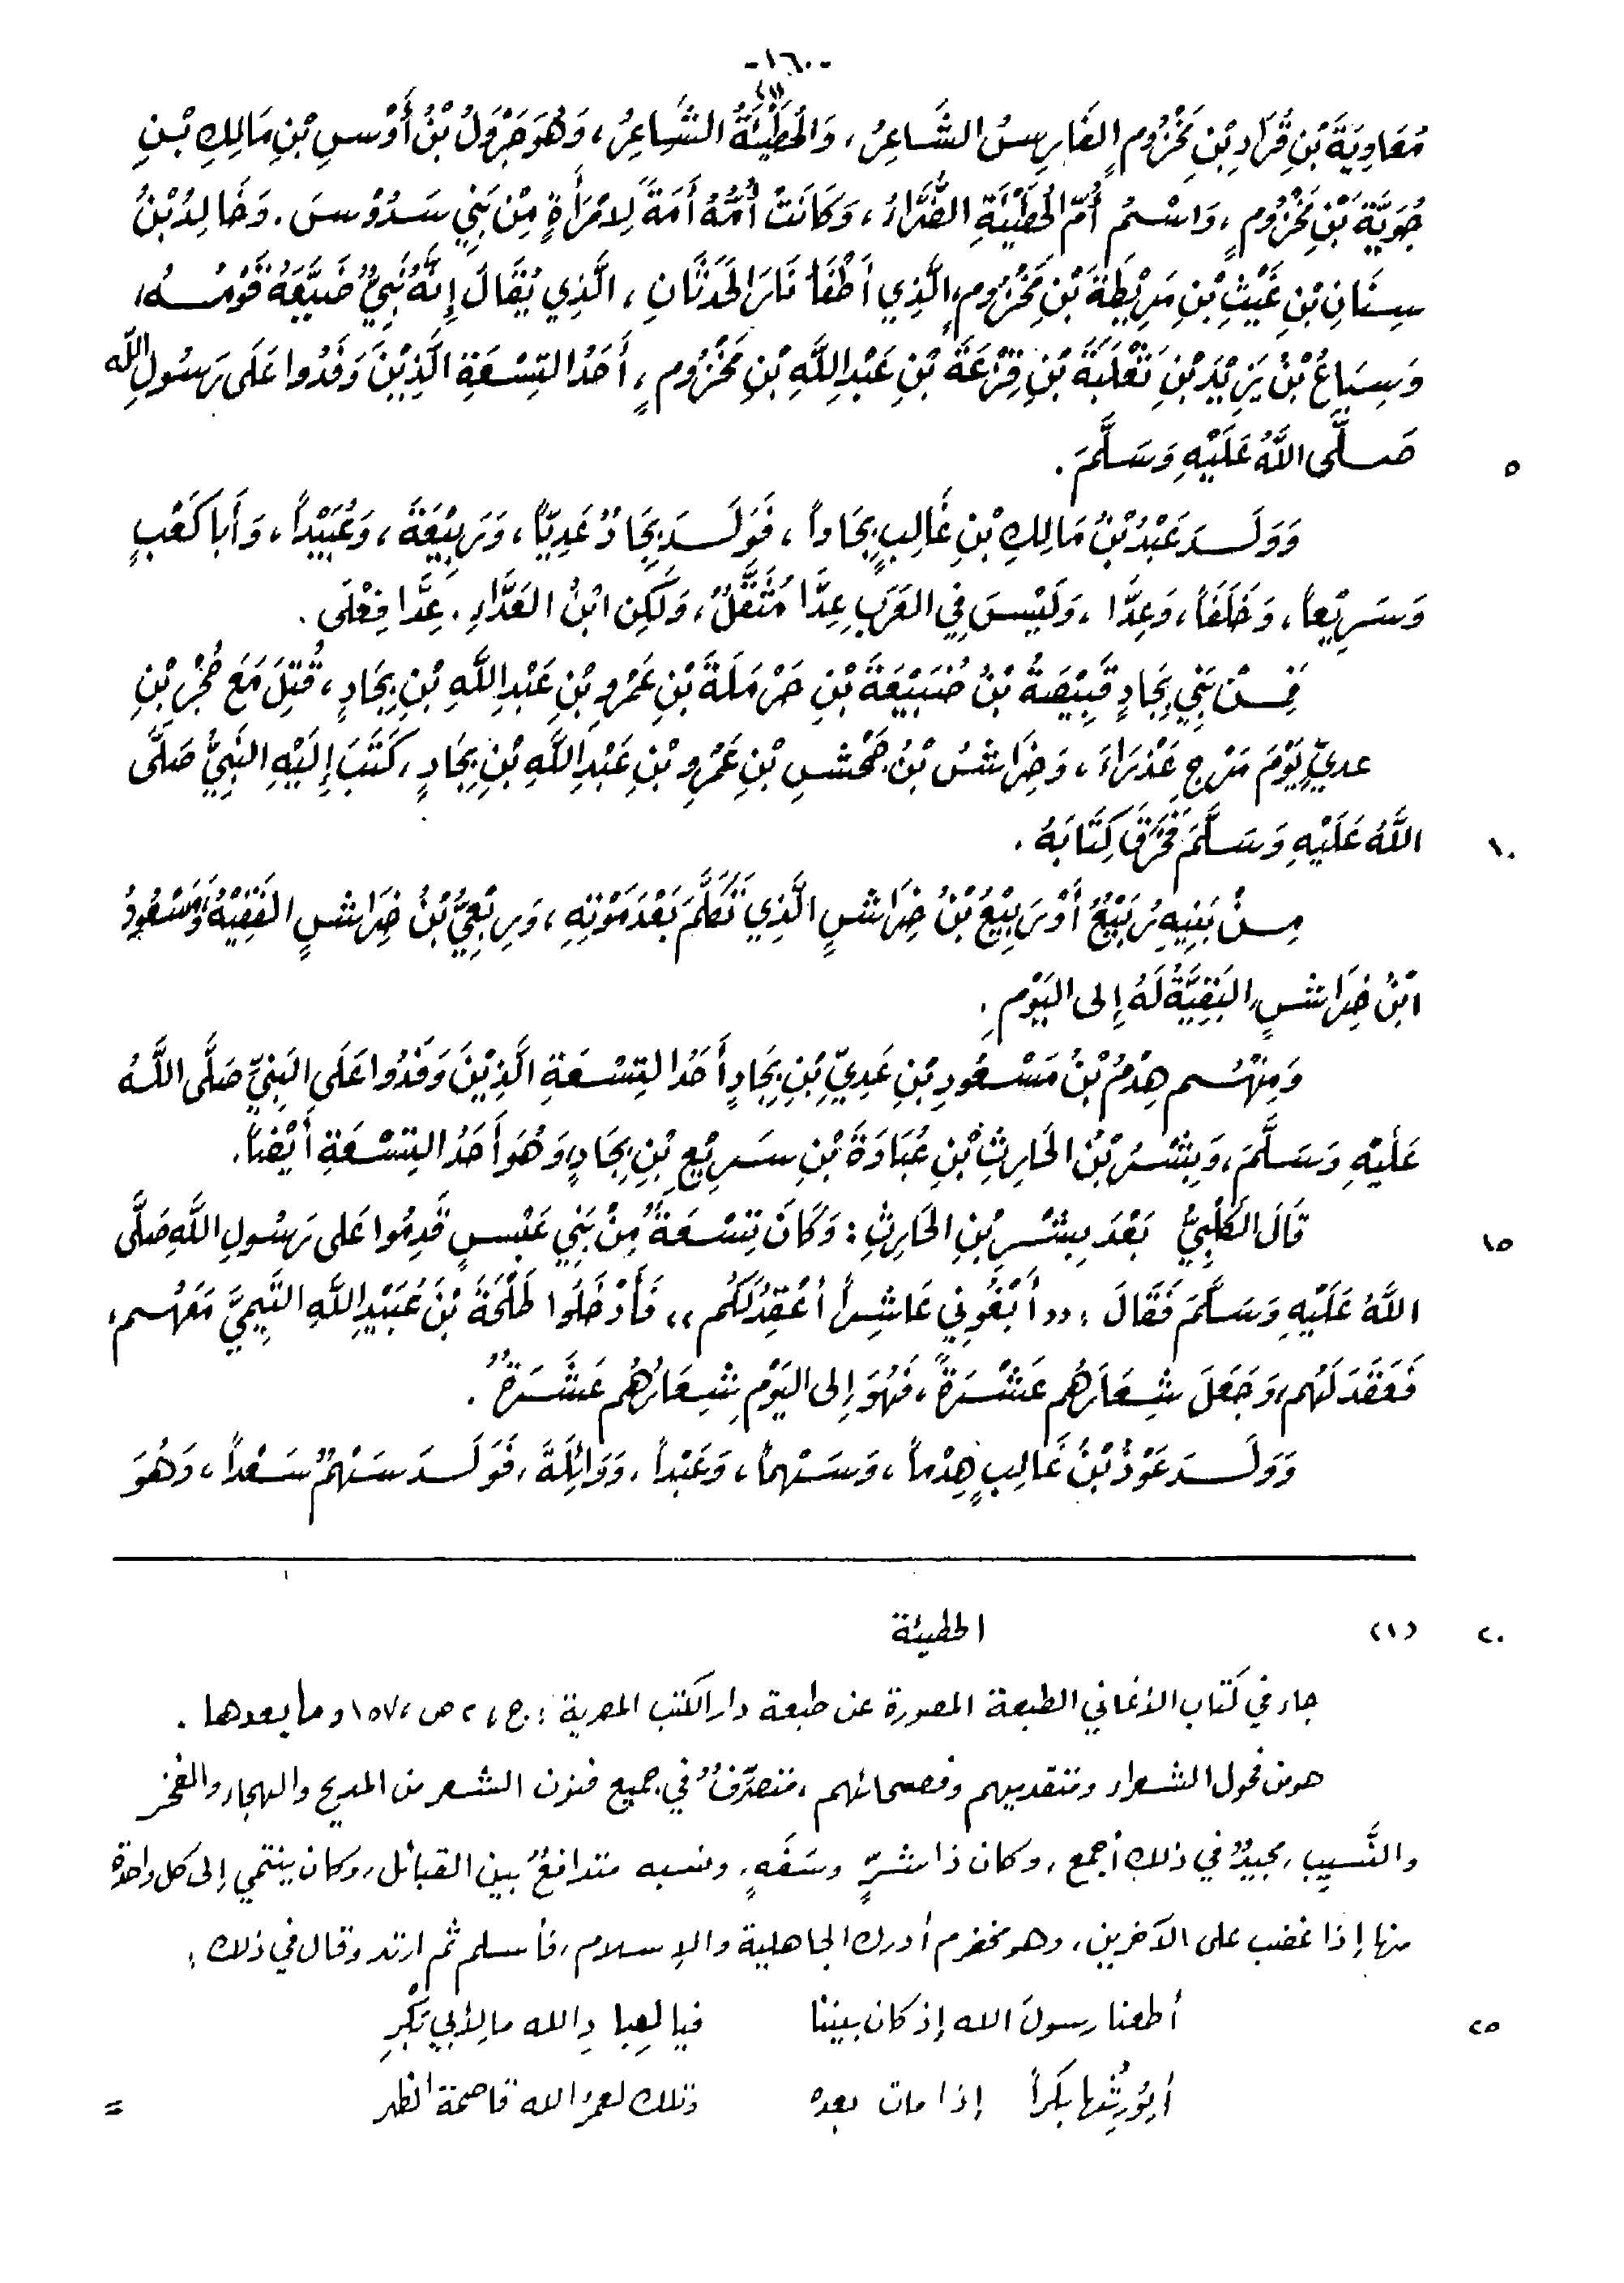 -١٦٠-
مُعَاوِيَةَ بْنِ قُرَادِ بْنِ مَخْزُومٍ الفَارِسُ الشَّاعِرُ، وَالحُطَيْئَةُ (١) الشَّاعِرُ، وَهُوَ جَرْوَلُ بْنُ أَوْسِ بْنِ مَالِكِ بْنِ
جُوَيَّةَ بْنِ مَخْزُومٍ، وَاسْمُ أُمِّ الحُطَيْئَةِ الضَّرَّاءُ، وَكَانَتْ أُمُّهُ أَمَةً لِامْرَأَةٍ مِنْ بَنِي سَدُوْسَ. وَخَالِدُ بْنُ
سِنَانِ بْنِ غَيْثِ بْنِ مَرِيْطَةَ بْنِ مَخْزُومٍ، الَّذِي أَطْفَأَ نَارَ الحَدَثَانِ، الَّذِي يُقَالُ إِنَّهُ نَبِيٌّ ضَيَّعَهُ قَوْمُهُ،
وَسِبَاعُ بْنُ يَزِيْدَ بْنِ ثَعْلَبَةَ بْنِ قَزْعَةَ بْنِ عَبْدِ اللَّهِ بْنِ مَخْزُومٍ، أَحَدُ التِسْعَةِ الَّذِيْنَ وَفَدُوا عَلَى رَسُولِ اللَّه
صَلَّى اللَّهُ عَلَيْهِ وَسَلَّمَ. ٥
وَوَلَدَ عَبْدُ بْنُ مَالِكِ بْنِ غَالِبٍ بِجَاداً، فَوَلَدَ بِجَادُ عَدِيّاً، وَرَبِيْعَةَ، وَعُبَيْداً، وَأَبَا كَعْبٍ
وَسَرِيْعاً، وَخَلَفاً، وَعِدَّا، وَلَيْسَ فِي العَرَبِ عِدَّا مُثَقَّلٌ، وَلَكِن ابْنُ العَدَّاءِ. عِدَّا فِعْلَى.
فَمِنْ بَنِي بِجَادٍ قَبِيْصَةُ بْنُ ضُبَيْعَةَ بْنِ حَرْمَلَةَ بْنِ عَمْرِو بْنِ عَبْدِ اللَّهِ بْنِ بِجَادٍ، قُتِلَ مَعَ حُجْرِ بْنِ
عديٍّ يَوْمَ مَرْجِ عَذْرَاءَ، وَخِرَاشُ بْنُ جَحْشِ بْنِ عَمْرِو بْنِ عَبْدِ اللَّهِ بْنِ بِجَادٍ، كَتَبَ إِلَيْهِ النَّبِيُّ صَلَّى
اللَّهُ عَلَيْهِ وَسَلَّمَ فَخَرَقَ كِتَابَهُ. ١٠
مِنْ بَنِيهِ رُبَيْعُ أَوْ رَبِيْعُ بْنُ خِرَاشٍ الَّذِي تَكَلَّمَ بَعْدَ مَوْتِهِ، وَرِبْعِيُّ بْنُ خِرَاشٍ الفَقِيْهُ، وَمَسْعُودُ
ابْنُ خِرَاشٍ، البَقِيَّةُ لَهُ إِلى اليَوْمِ.
وَمِنْهُم هِدْمُ بْنُ مَسْعُودِ بْنِ عَدِيِّ بْنِ بِجَادٍ أَحَدُ التِسْعَةِ الَّذِيْنَ وَفَدُوا عَلَى النَبِيِّ صَلَّى اللَّهُ
عَلَيْهِ وَسَلَّمَ، وَبِشْرُ بْنُ الحَارِثِ بْنِ عُبَادَةَ بْنِ سَرِيْعِ بْنِ بِجَادٍ، وَهُوَ أَحَدُ التِسْعَةِ أَيْضاً.
قَالَ الكَلْبِيُّ بَعْدَ بِشْرِ بْنِ الحَارِثِ: وَكَانَ تِسْعَةٌ مِنْ بَنِي عَبْسٍ قَدِمُوا عَلى رَسُولِ اللَّهِ صَلَّى ١٥
اللَّهُ عَلَيْهِ وَسَلَّمَ فَقَالَ: «أَبْغُونِي عَاشِراً أعْقِدْ لَكُم» فَأَدْخَلُوا طَلْحَةَ بْنَ عُبَيْدِ اللَّهِ التَّيمِيَّ مَعَهُم،
فَعَقَدَ لَهُم، وَجَعَلَ شِعَارَهُم عَشْرَةً، فَهُوَ إِلى اليَوْمِ شِعَارُهُم عَشَرَةٌ.
وَوَلَدَ عَوْذُ بْنُ غَالِبٍ هِدْماً، وَسَهْماً، وَعَبْداً، وَوَائِلَةَ، فَوَلَدَ سَهْمٌ سَعْداً، وَهُوَ
(١) الحطيئة ٢٠
جاء في كتاب الأغاني الطبعة المصورة عن طبعة دار الكتب المصرية: ج، ٢ ص، ١٥٧ وما بعدها.
هو من فحول الشعراء ومتقدميهم وفصحائهم، متصرّفٌ في جميع فنون الشعر من المديح والهجاء والفخر
والنَّسيبِ، مجيدٌ في ذلك أجمع، وكان ذا شرٍّ وسَفَهٍ، ونسبه متدافعٌ بين القبائل، وكان ينتمي إلى كل واحدة
منها إذا غضب على الآخرين، وهو مخضرم أدرك الجاهلية والإسلام، فأسلم ثم ارتد وقال في ذلك:
أطعنا رسولَ الله إذ كان بيننا فيا لَعِبادِ الله ما لِأَبي بَكْرِ ٢٥
أيُورِثُها بكراً إذا مات بعده وتلك لعمرُ الله قاصمة الظهر =